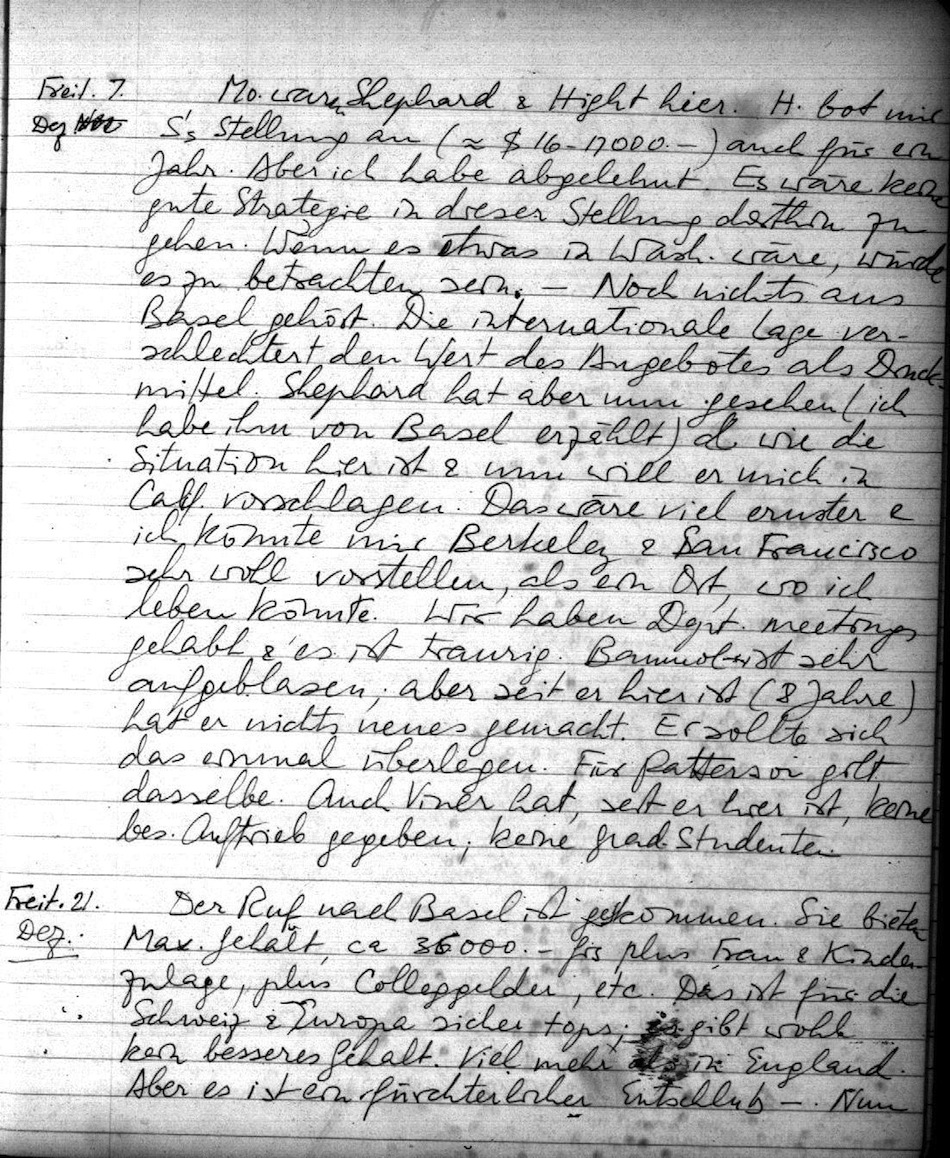 Freit. 7. Mo. waren Shephard & Hight hier. H. bot mir
Dez Nov S's Stellung an (≈ $ 16-17000.-) auch für ein
Jahr. Aber ich habe abgelehnt. Es wäre keine
gute Strategie in dieser Stellung dorthin zu
gehen. Wenn es etwas in Wash. wäre, würde
es zu betrachten sein. – Noch nichts aus
Basel gehört. Die internationale Lage ver-
schlechtert den Wert des Angebotes als Druck-
mittel. Shephard hat aber nun gesehen (ich
habe ihm von Basel erzählt) wie die
Situation hier ist & nun will er mich in
Calif. vorschlagen. Das wäre viel ernster &
ich könnte mir Berkeley & San Francisco
sehr wohl vorstellen, als ein Ort, wo ich
leben könnte. Wir haben Dept. meetings
gehabt & es ist traurig. Baumol ist sehr
aufgeblasen, aber seit er hier ist (8 Jahre)
hat er nichts neues gemacht. Er sollte sich
das einmal überlegen. Für Patterson gilt
dasselbe. Auch Viner hat, seit er hier ist, keine
bes. Auftrieb gegeben, keine grad. Studenten
Freit. 21. Der Ruf nach Basel ist gekommen. Sie bieten
Dez. Max. Gehalt, ca 36000.- frs plus Frau & Kinder
zulage, plus Colleggelder, etc. Das ist für die
Schweiz & Europa sicher tops; es gibt wohl
kein besseres Gehalt. Viel mehr als in England.
Aber es ist ein fürchterlicher Entschluß –. Nun